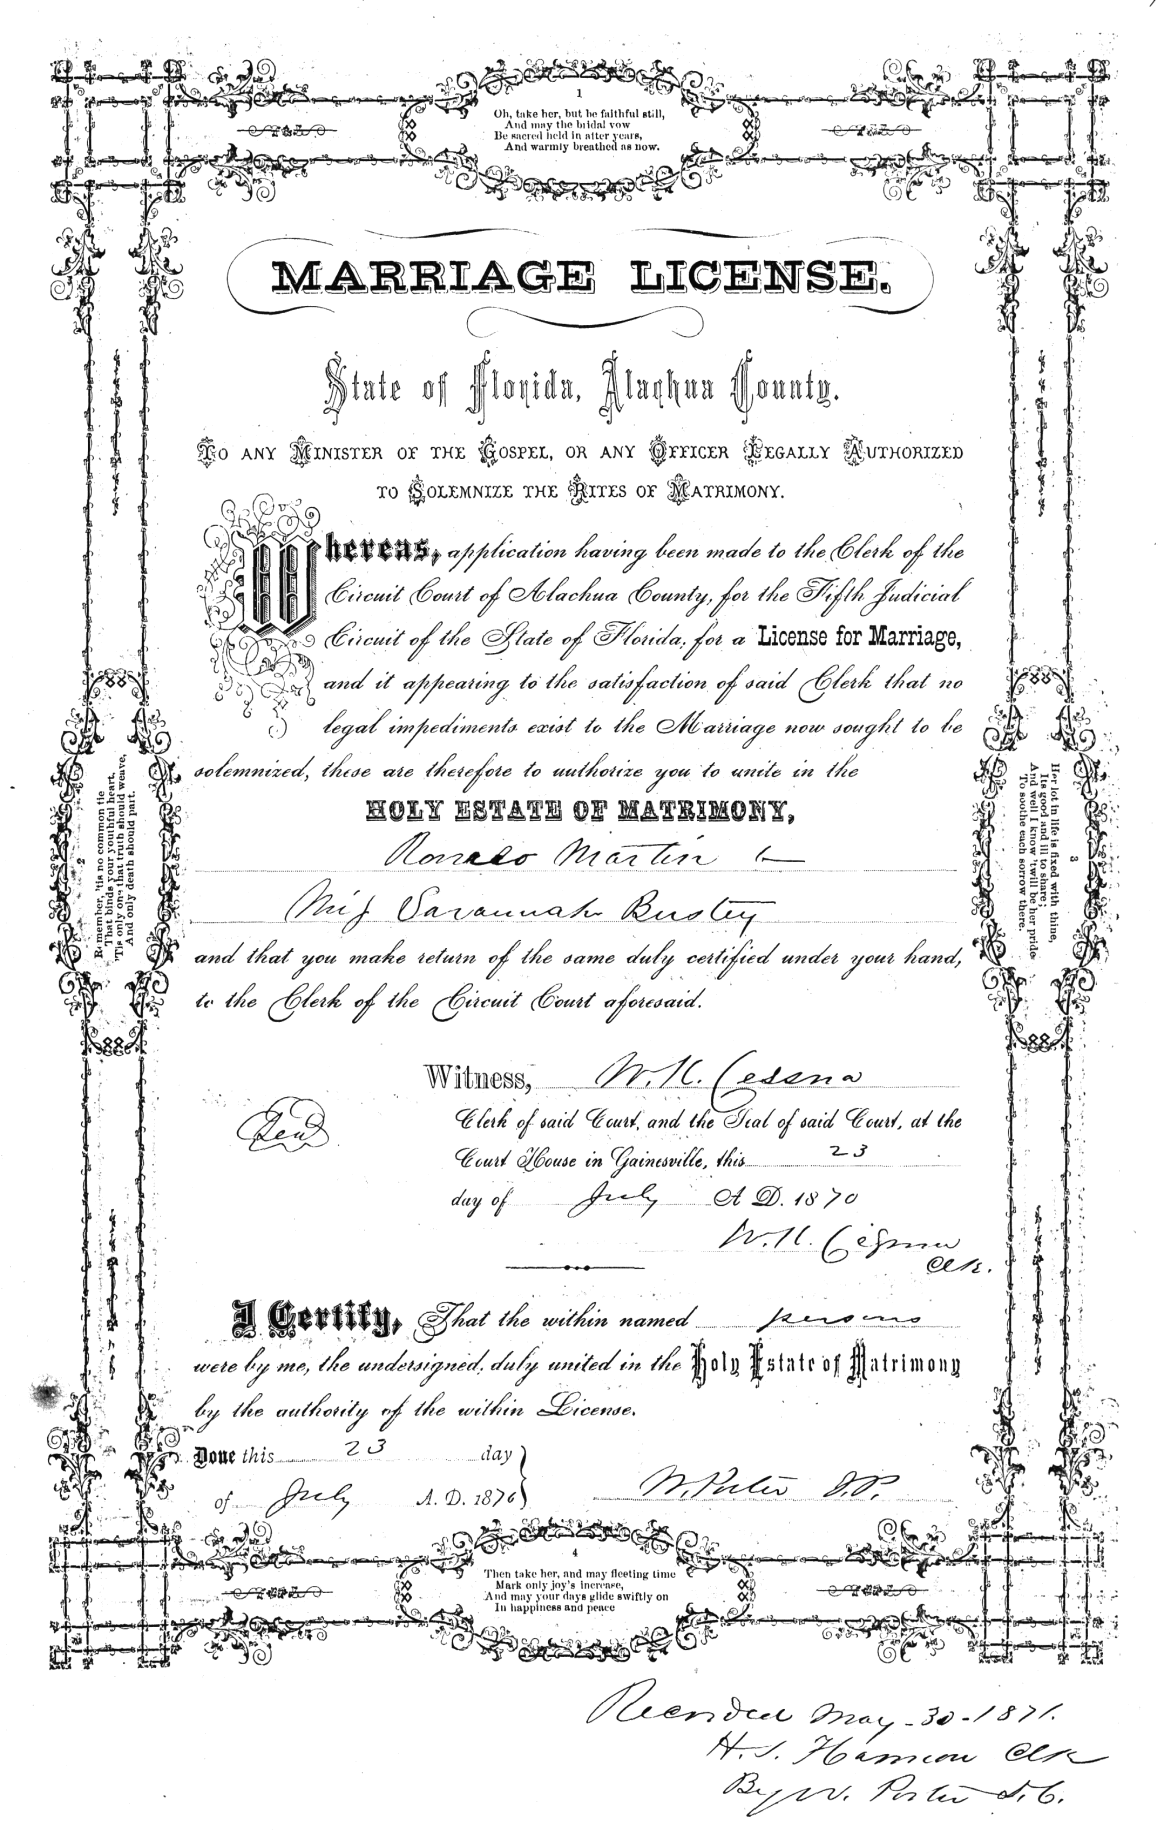 1
Oh, take her, but be faithful still,
And may the bridal vow
Be sacred held in after years,
And warmly breathed as now.
MARRIAGE LICENSE.
State of Florida, Alachua County.
TO ANY MINISTER OF THE GOSPEL, OR ANY OFFICER LEGALLY AUTHORIZED
TO SOLEMNIZE THE RITES OF MATRIMONY.
Whereas, application having been made to the Clerk of the
Circuit Court of Alachua County, for the Fifth Judicial
Circuit of the State of Florida, for a License for Marriage,
and it appearing to the satisfaction of said Clerk that no
legal impediments exist to the Marriage now sought to be
solemnized, these are therefore to authorize you to unite in the
HOLY ESTATE OF MATRIMONY,
Martin
Miss Savannah
and that you make return of the same duly certified under your hand,
to the Clerk of the Circuit Court aforesaid.
2
Remember, 'tis no common tie
That binds your youthful heart,
'Tis only one that truth should weave,
And only death should part.
3
Her lot in life is fixed with thine,
Its good and ill to share;
And well I know 'twill be her pride
To soothe each sorrow there.
Witness, W. K. Cessna
Seal
Clerk of said Court, and the Seal of said Court, at the
Court House in Gainesville, this 23
day of July A. D. 1870
W. K. Cessna
Clk.
I Certify, That the within named persons
were by me, the undersigned, duly united in the Holy Estate of Matrimony
by the authority of the within License.
Done this 23 day
of July A. D. 1870
W. Porter J.P.
4
Then take her, and may fleeting time
Mark only joy's increase,
And may your days glide swiftly on
In happiness and peace
Recorded May-30-1871.
H. S. Harmon Clk
By W. Porter D.C.